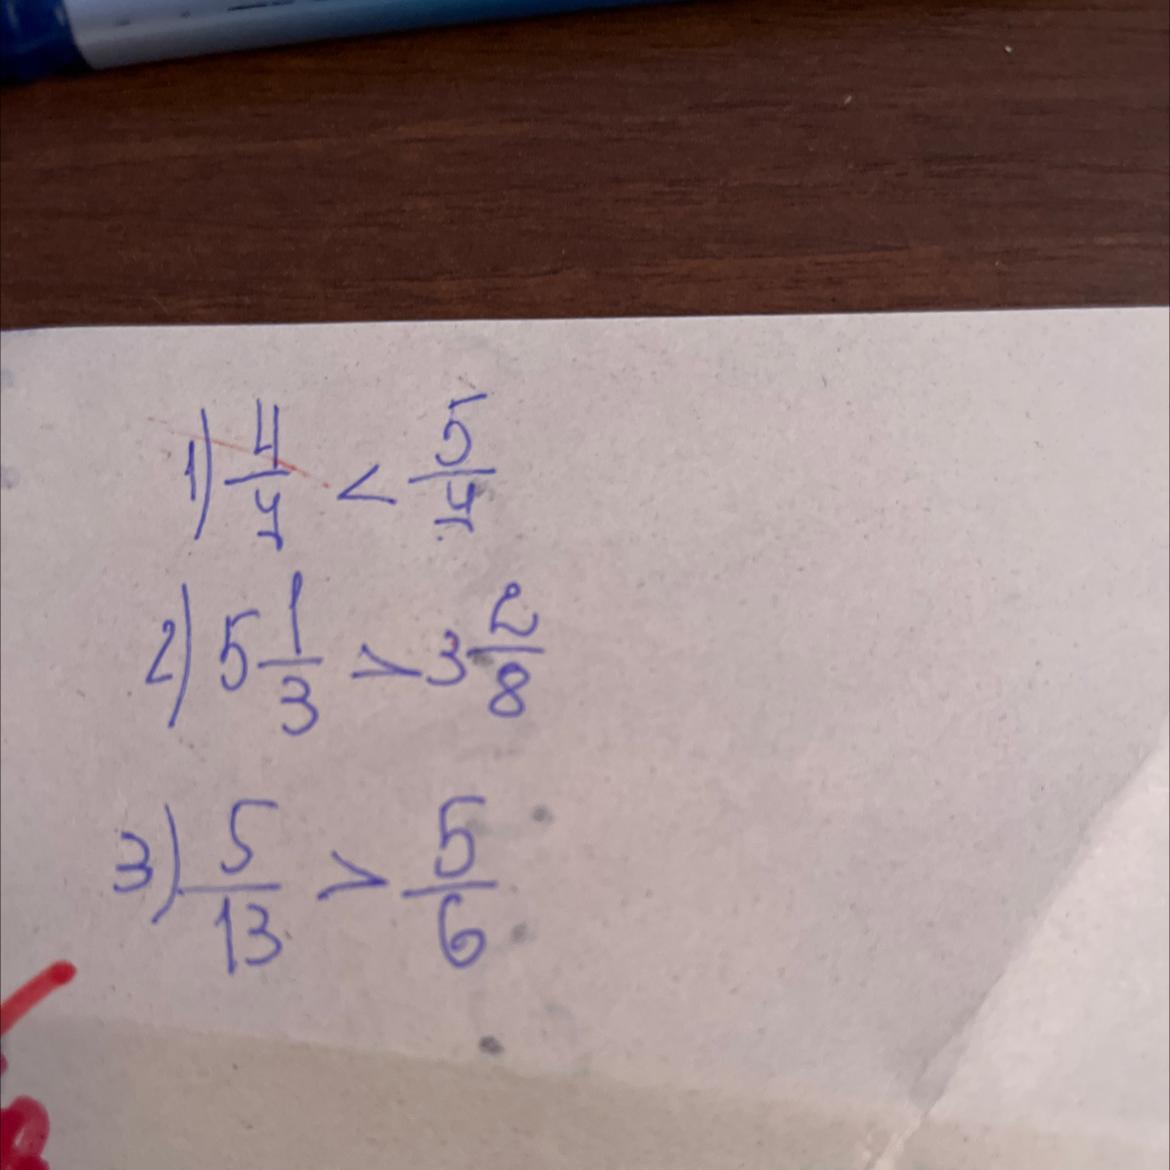 1) 4/4 < 5/4
2) 5 1/3 > 3 2/8
3) 5/13 > 5/6